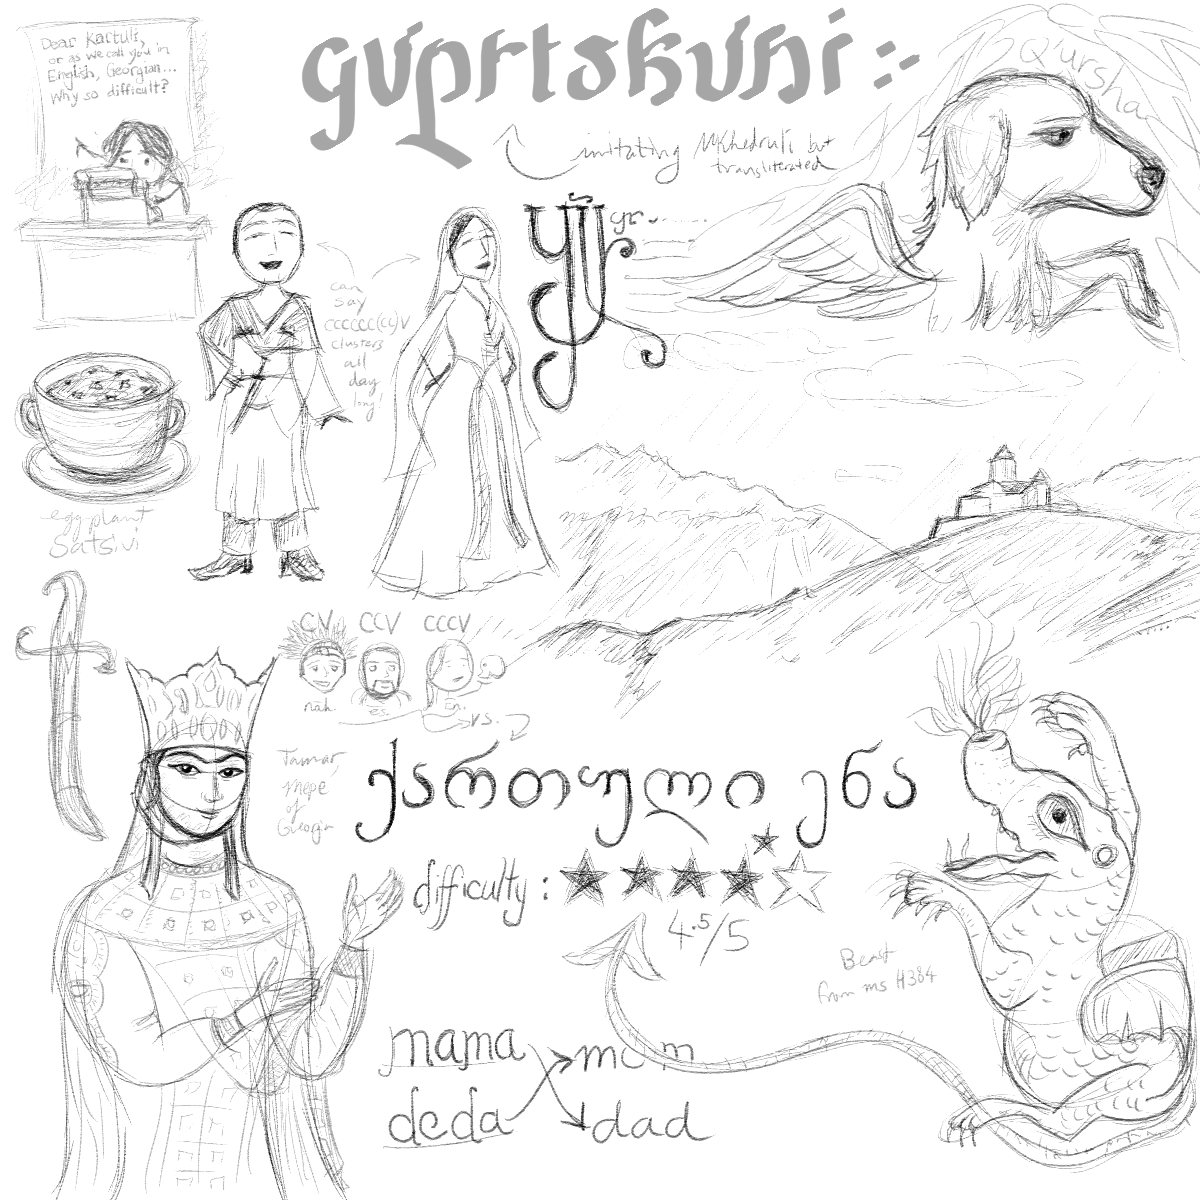 Dear Kartuli,
or as we call you in
English, Georgian...
Why so difficult?
gvprtskvni :-
imitating Mkhedruli but
transliterated
Q'ursha
can
say
CCCCCC(CC)V
clusters
all
day
long!
eggplant
Satsivi
CV CCV CCCV
nah.
vs.
Tamar,
mepe
of
Georgia
ქართული ენა
difficulty :
4.5/5
Beast
from ms H384
mama mom
deda dad